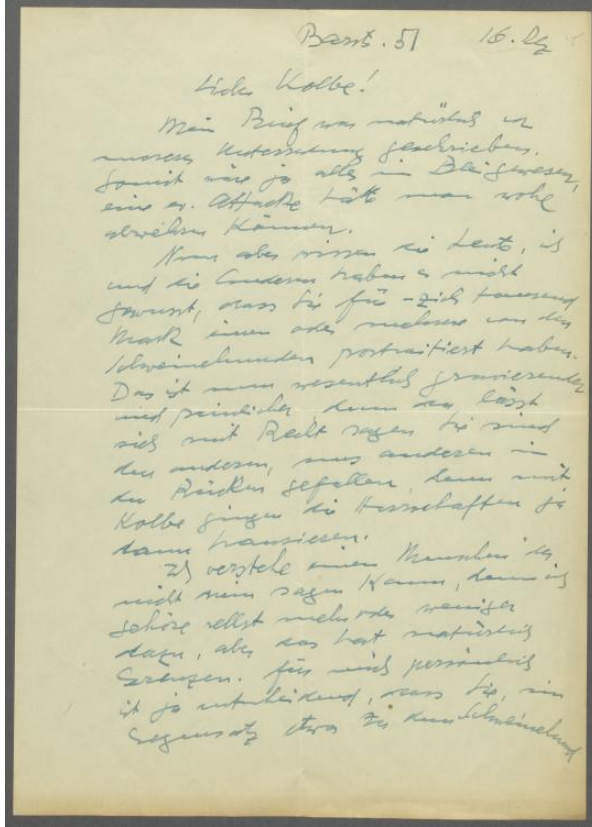 Barst. 51 16. Dez
Lieber Kolbe!
Mein Brief war natürlich vor
unserer Unterredung geschrieben.
Somit wäre ja alles im Blei gewesen,
eine ev. Attacke hätte man wohl
abwehren können.
Nun aber wissen die Leute, ich
und die Anderen haben es nicht
gewusst, dass Sie für -zich tausend
Mark einen oder mehrere von den
Schweinehunden portraitiert haben.
Das ist nun wesentlich gravierender
und peinlicher, denn da lässt
sich mit Recht sagen Sie sind
den anderen, uns anderen in
den Rücken gefallen, denn mit
Kolbe gingen die Herrschaften ja
dann hausieren.
Ich verstehe einen Menschen der
nicht nein sagen kann, denn ich
gehöre selbst mehr oder weniger
dazu, aber das hat natürlich
Grenzen. Für mich persönlich
ist ja entscheidend, dass Sie, im
Gegensatz etwa zu dem Schweinehund